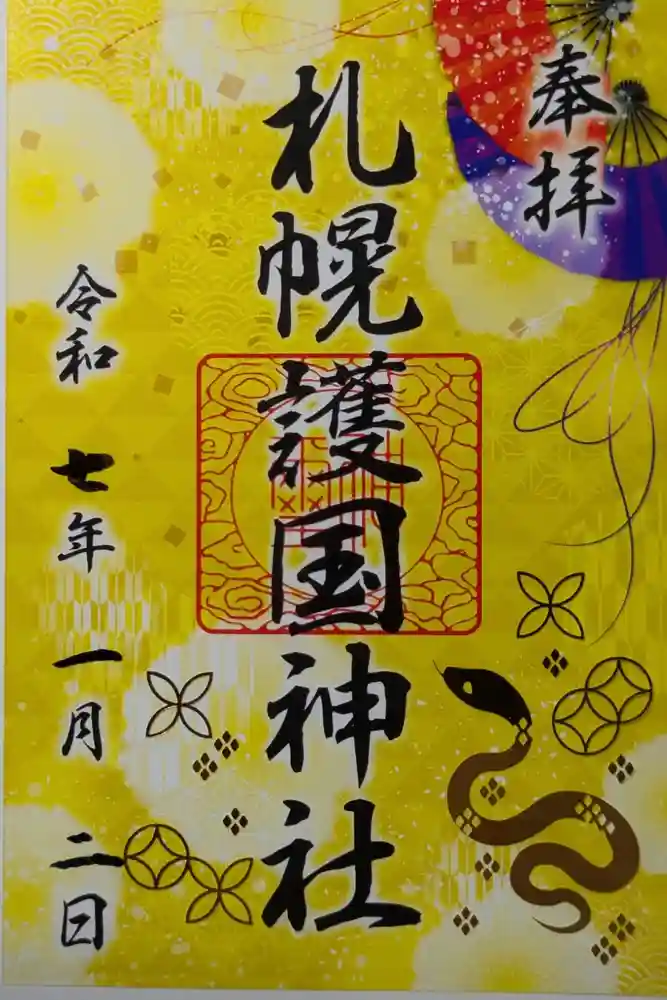 奉拝
札幌護国神社
令和七年一月二日